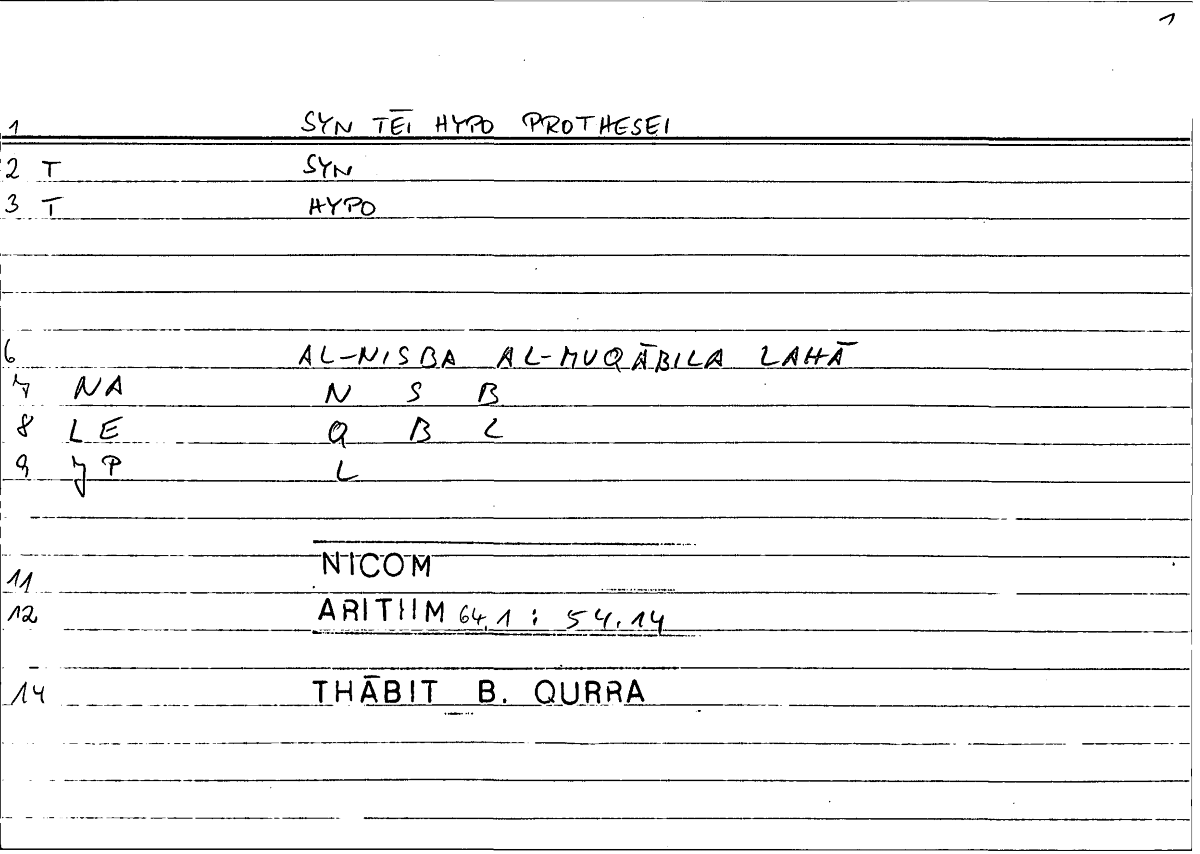 1
1 SYN TĒI HYPO PROTHESEI
2 T SYN
3 T HYPO
6 AL-NISBA AL-MUQĀBILA LAHĀ
7 NA N S B
8 LE Q B L
9 JP L
11 NICOM
12 ARITHM 64,1 : 54.14
14 THĀBIT B. QURRA